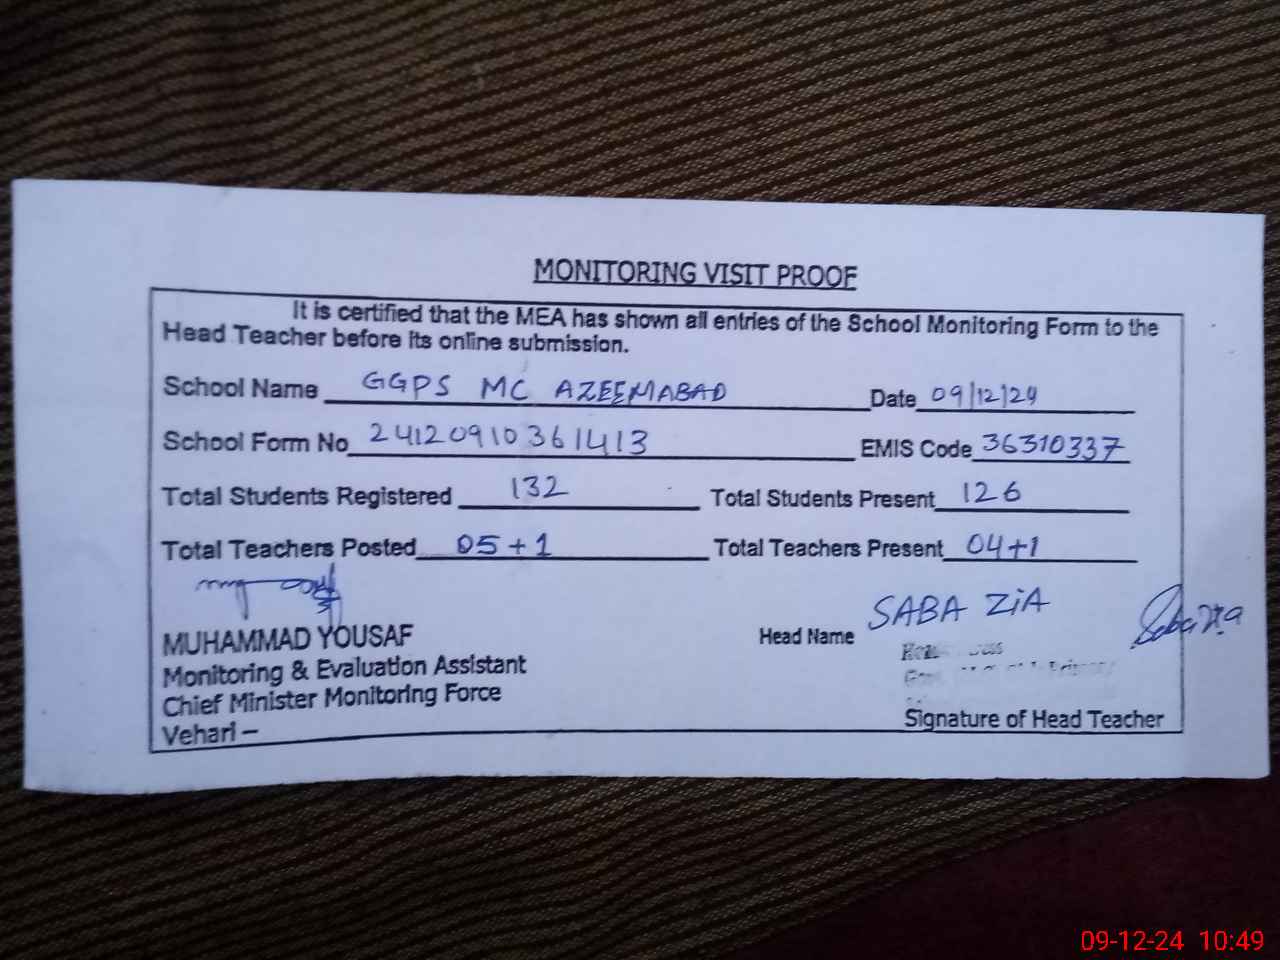 MONITORING VISIT PROOF
It is certified that the MEA has shown all entries of the School Monitoring Form to the
Head Teacher before its online submission.
School Name GGPS MC AZEEMABAD Date 09/12/24
School Form No 24120910361413 EMIS Code 36310337
Total Students Registered 132 Total Students Present 126
Total Teachers Posted 05+1 Total Teachers Present 04+1
MUHAMMAD YOUSAF
Monitoring & Evaluation Assistant
Chief Minister Monitoring Force
Vehari –
Head Name SABA ZiA
Saba Zia
Signature of Head Teacher
09-12-24 10:49